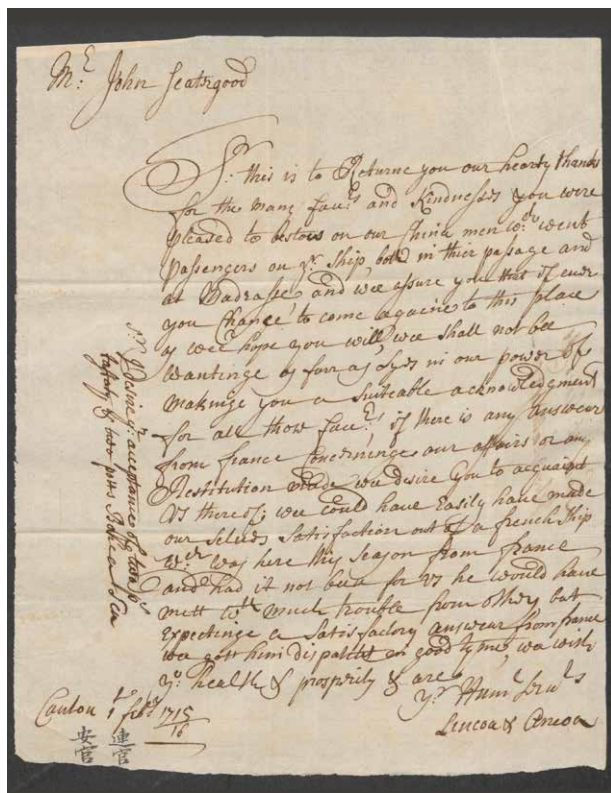 Mr: John Scatergood
Sr: this is to Returne you our hearty thanks
for the many favrs and Kindnesses you were
pleased to bestow on our China men wch: went
passengers on yr: Ship, both in thier passage and
at Madrasse, and wee assure you that if ever
you Chance to come againe to this place
as wee hope you will, wee shall not bee
Wantinge as farr as Lyes in our power of
makinge you a Suiteable acknowledgment
for all thos favrs: if there is any answear
from france Concerninge our affairs or any
Restitution made we desire you to acquaint
Vs thereof; we could have Easily have made
our Selves Satisfaction out of a french Ship
wch was here this Season from france
and had it not been for Vs he would have
mett wth much trouble from others but
Expectinge a Satisfactory answear from france
wee gott him dispatcht in good tyme, wee wish
yo: health & prosperity & are
yr Humle Servts
Lincoa & Ancoa
Canton 1st febr 1715/16
連官
安官
Sr: I desire yr: acceptance of two ps
taffaty & two potts Bohea Tea